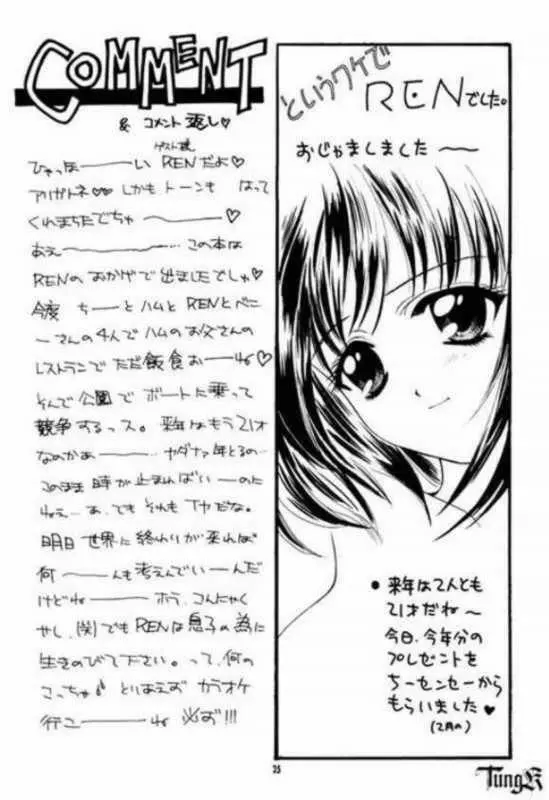 COMMENT
& コメント返し♡
ひゃっほーーーい RENだよ♡
アリガトネ♡♡ しかも トーンも はって
くれまちたでちゃ ーーーー♡
あぇーーーー… この本は
RENの おかげで 出ましたでしゅ♡
今度 ちーと ハムと RENと べに
ーさんの 4人で ハムの お父さんの
レストランで ただ飯食おーね♡
そんで 公園で ボートに 乗って
競争するっス。来年は もう 21才
なのかあーーー ヤダナァ 年とるの…
このまま 時が 止まればいーのに
ねぇ… あ、でも それも イヤだな。
明日 世界に 終わりが 来れば
何ーーーんも 考えんでいーんだ
けどねーーー ホラ、コンにゃく
やし、(笑) でも RENは 息子の 為に
生きのびて 下さい。って、何の
こっちゃ♪ とりあえず カラオケ
行こーーーーね 必ず!!!
というワケで
RENでした。
おじゃましました 〜〜
• 来年は 2人とも
21才だね〜
今日、今年分の
プレゼントを
ちーセンセーから
もらいました♥
(2月の)
25
TungK